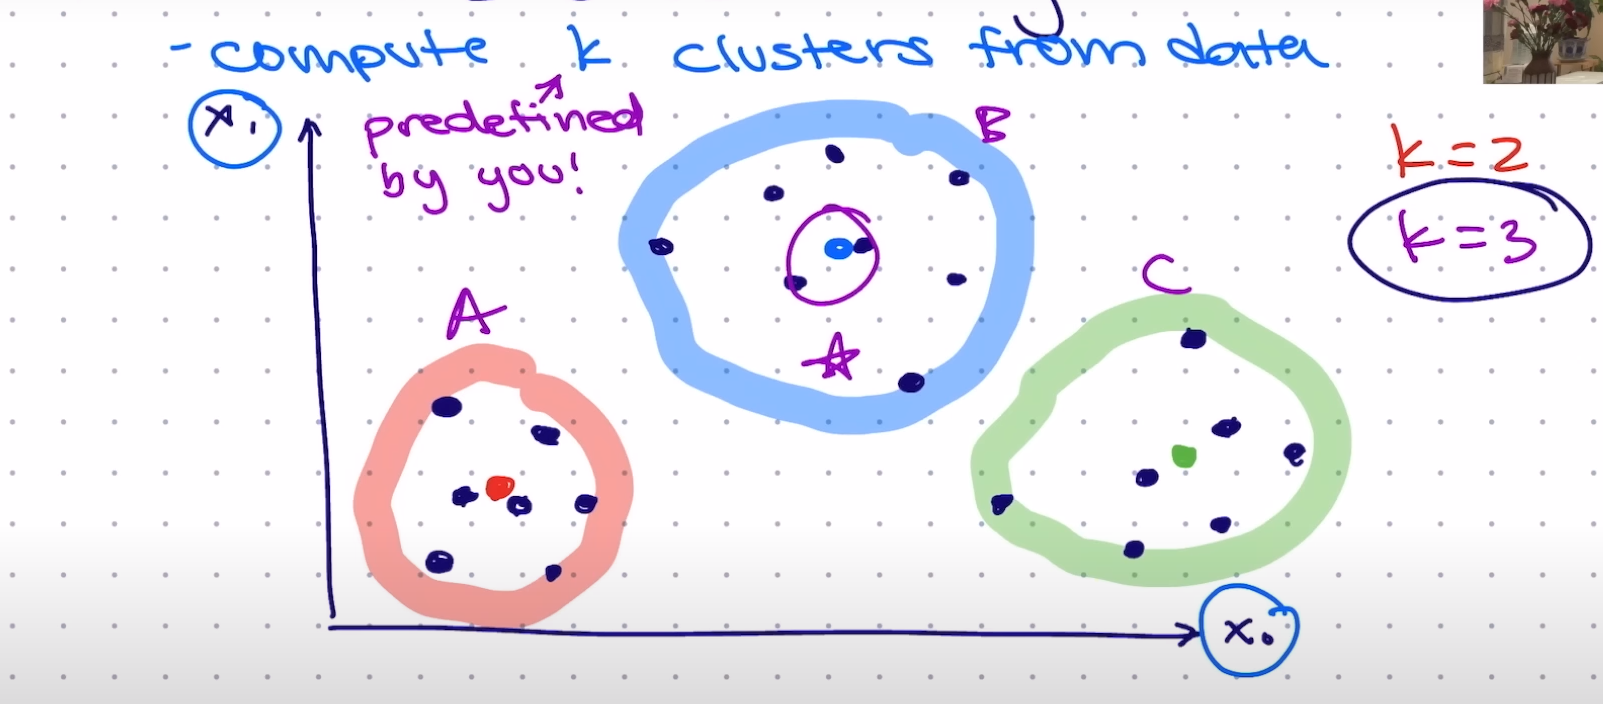 - compute k clusters from data
x₁
predefined
by you!
B
k=2
k=3
C
A
x₀